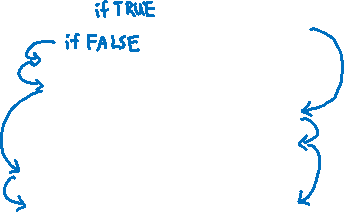 if TRUE
if FALSE